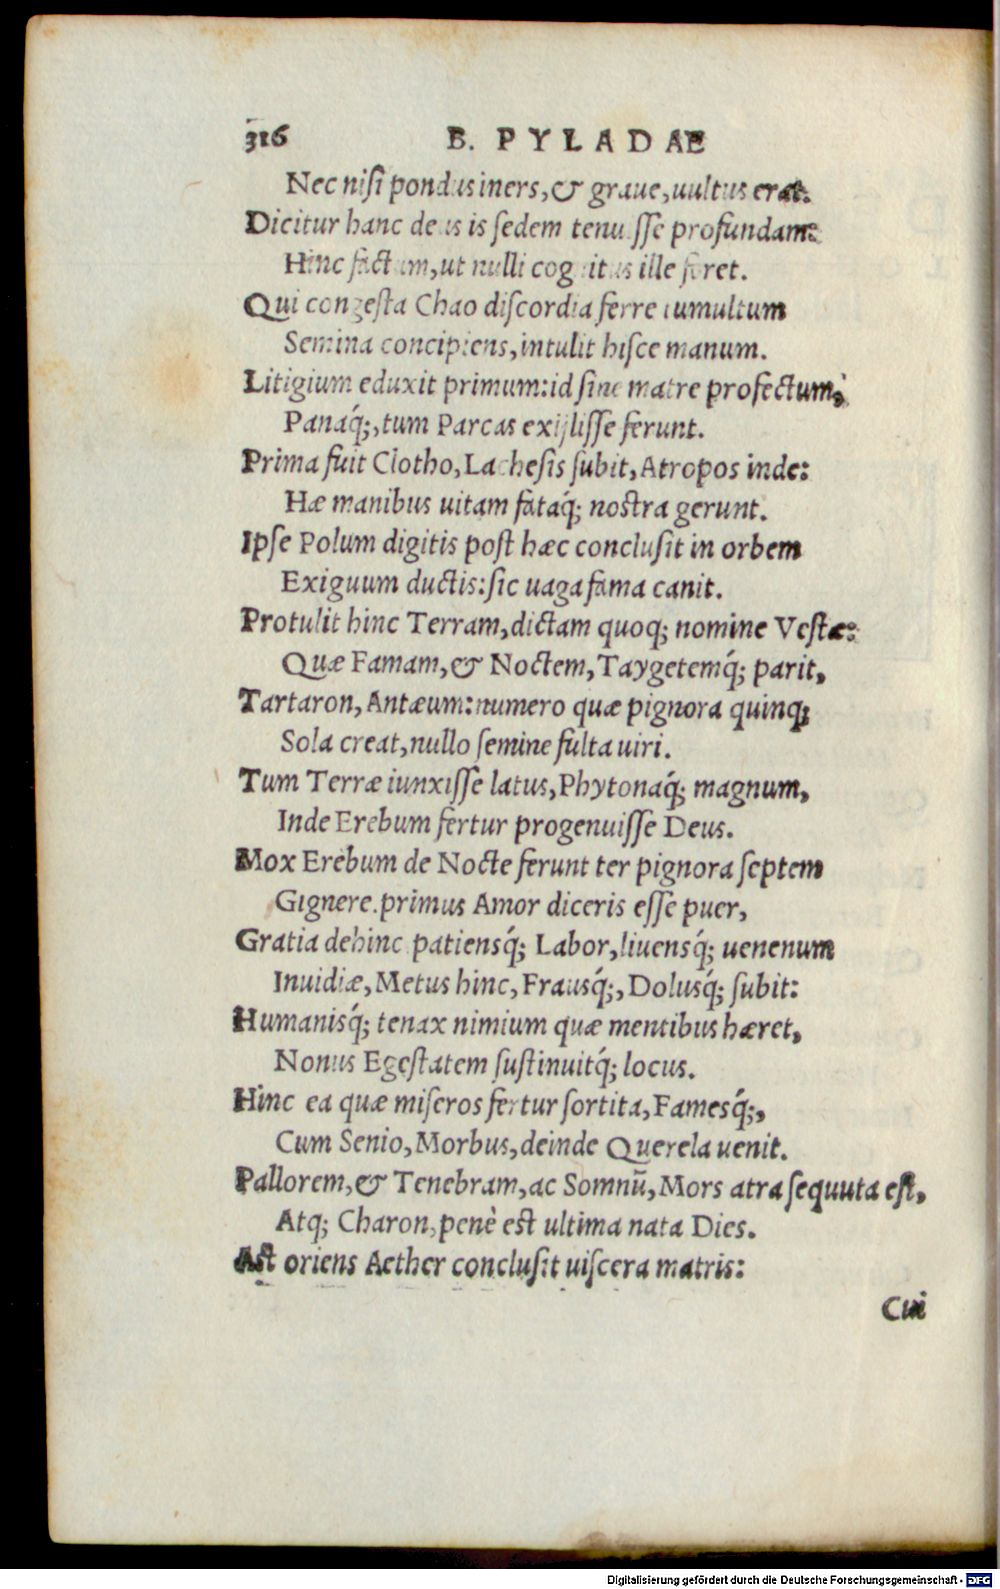 316 B. PYLADAE
Nec niſi pondus iners, & graue, uultus erat.
Dicitur hanc deus is ſedem tenuiſſe profundam:
Hinc factum, ut nulli cognitus ille foret.
Qui congeſta Chao diſcordia ferre tumultum
Semina concipiens, intulit hiſce manum.
Litigium eduxit primum: id ſine matre profectum,
Panaq́;, tum Parcas exijliſſe ferunt.
Prima fuit Clotho, Lacheſis ſubit, Atropos inde:
Hæ manibus uitam fataq́; noſtra gerunt.
Ipſe Polum digitis poſt hæc concluſit in orbem
Exiguum ductis: ſic uaga fama canit.
Protulit hinc Terram, dictam quoq; nomine Veſtæ:
Quæ Famam, & Noctem, Taygetemq́; parit,
Tartaron, Antæum: numero quæ pignora quinq;
Sola creat, nullo ſemine fulta uiri.
Tum Terræ iunxiſſe latus, Phytonaq́; magnum,
Inde Erebum fertur progenuiſſe Deus.
Mox Erebum de Nocte ferunt ter pignora ſeptem
Gignere. primus Amor diceris eſſe puer,
Gratia dehinc patiensq́; Labor, liuensq́; uenenum
Inuidiæ, Metus hinc, Frausq́;, Dolusq́; ſubit:
Humanisq́; tenax nimium quæ mentibus hæret,
Nonus Egeſtatem ſuſtinuitq́; locus.
Hinc ea quæ miſeros fertur ſortita, Famesq́;,
Cum Senio, Morbus, deinde Querela uenit.
Pallorem, & Tenebram, ac Somnū, Mors atra ſequuta eſt,
Atq; Charon, penè eſt ultima nata Dies.
Aſt oriens Aether concluſit uiſcera matris:
Cui
Digitalisierung gefördert durch die Deutsche Forschungsgemeinschaft - DFG